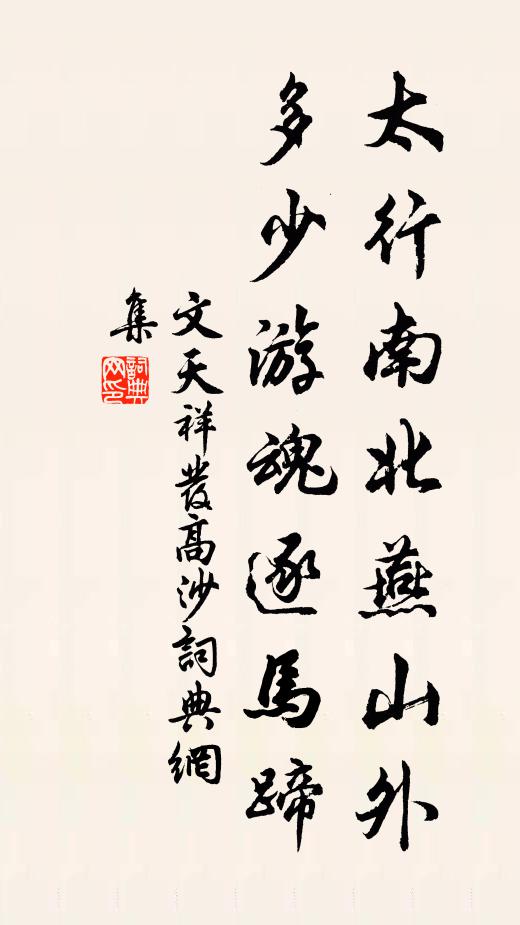 太行南北燕山外
多少游魂逐馬蹄
文天祥發高沙詞典網
集
詞典
网印